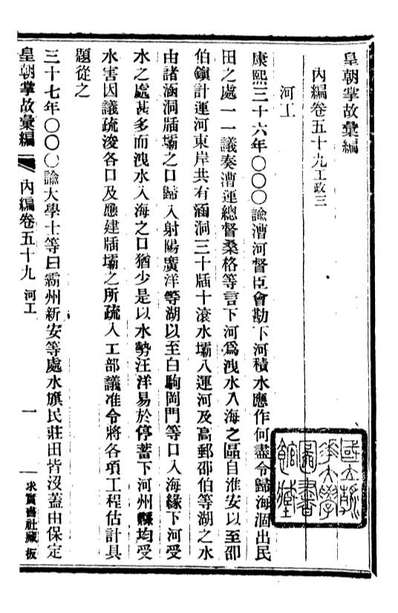 皇朝掌故彙編
內編卷五十九工政三
河工
康熙三十六年〇〇〇諭漕河督臣會勘下河積水應作何盡令歸海涸出民
田之處一一議奏漕運總督桑格等言下河爲洩水入海之區自淮安以至邵
伯鎮計運河東岸共有涵洞三十牐十滾水壩八運河及高郵邵伯等湖之水
由諸涵洞牐壩之口歸入射陽廣洋等湖以至白駒岡門等口入海緣下河受
水之處甚多而洩水入海之口猶少是以水勢汪洋易於停蓄下河州縣均受
水害因議疏浚各口及應建牐壩之所疏入工部議准令將各項工程估計具
題從之
三十七年〇〇〇諭大學士等曰霸州新安等處水旗民莊田皆沒蓋由保定
皇朝掌故彙編 內編卷五十九 河工 一 求實書社藏板